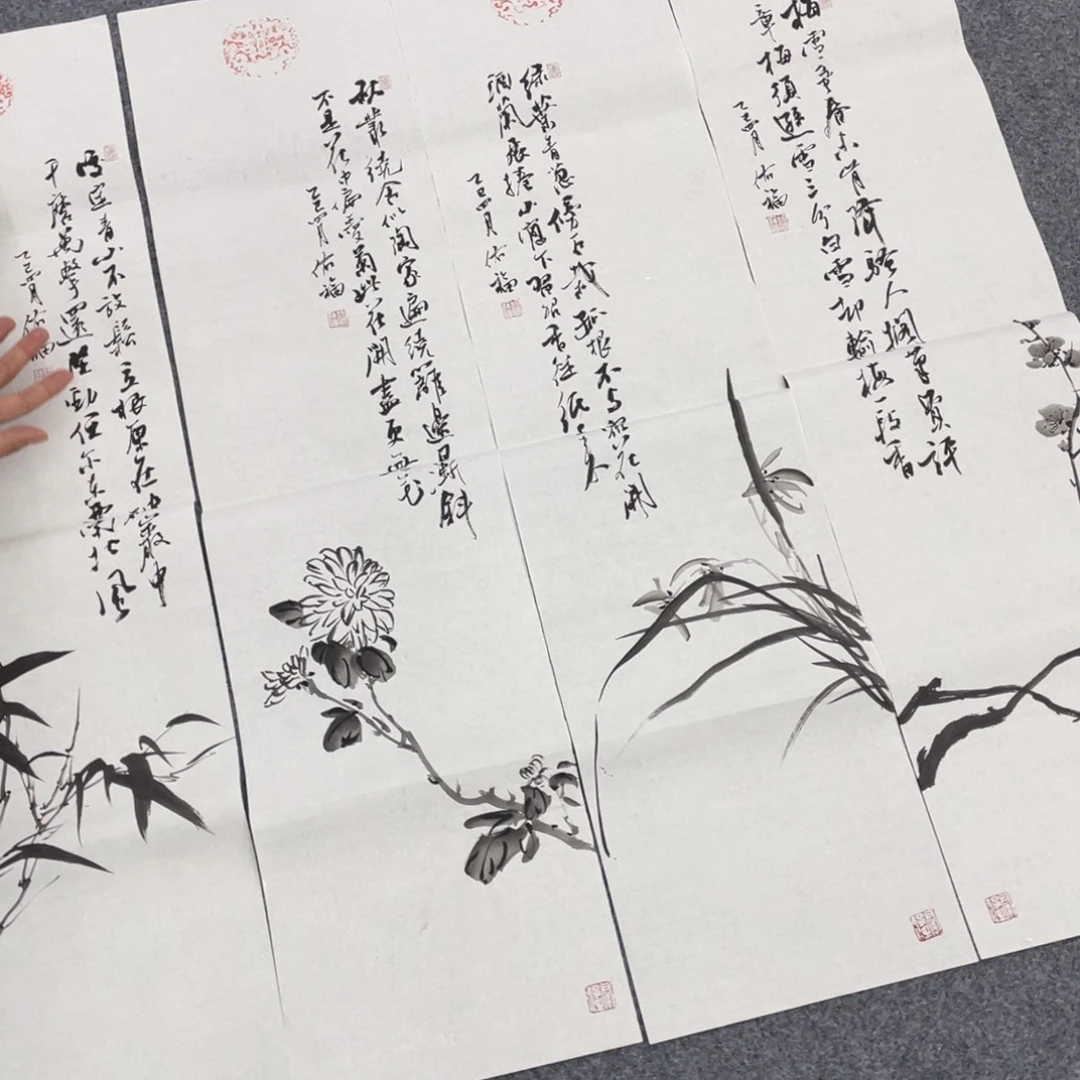 梅雪争春未肯降骚人搁笔费评
章梅须逊雪三分白雪却输梅一段香
乙巳四月 佑福
绿叶青葱傍石栽孤根不与众花开
酒阑展捲山窗下习习香从纸上来
乙巳四月 佑福
秋丛绕舍似陶家遍绕篱边日渐斜
不是花中偏爱菊此花开尽更无花
乙巳四月 佑福
咬定青山不放鬆立根原在破巖中
千磨萬擊還坚劲任尔东西南北风
乙巳四月 佑福